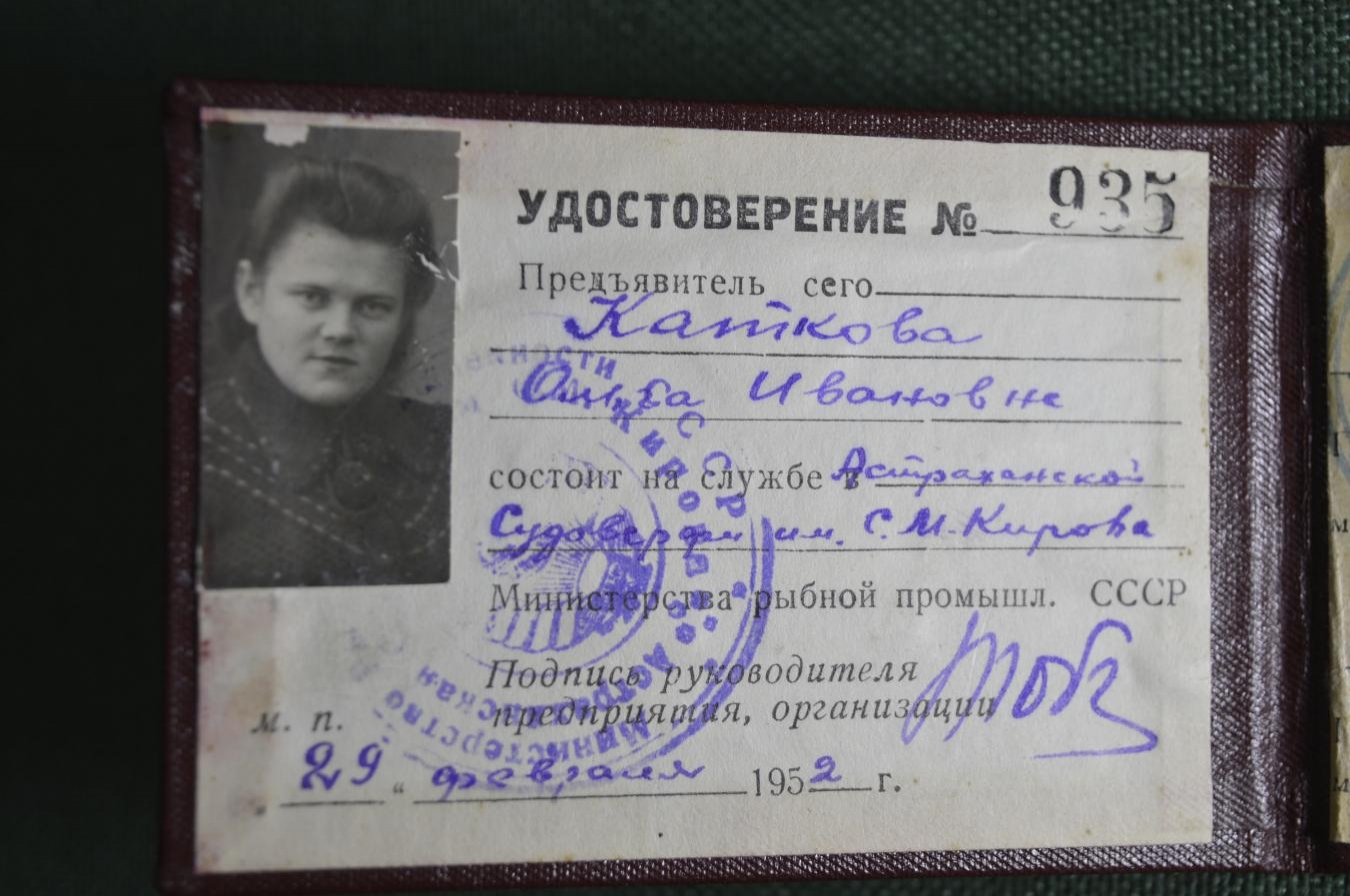 УДОСТОВЕРЕНИЕ № 935
Предъявитель сего
Каткова
Ольга Ивановне
состоит на службе в Астраханской
Судоверфи им. С.М. Кирова
Министерства рыбной промышл. СССР
Подпись руководителя
предприятия, организации
м. п.
„29“ февраля 1952 г.